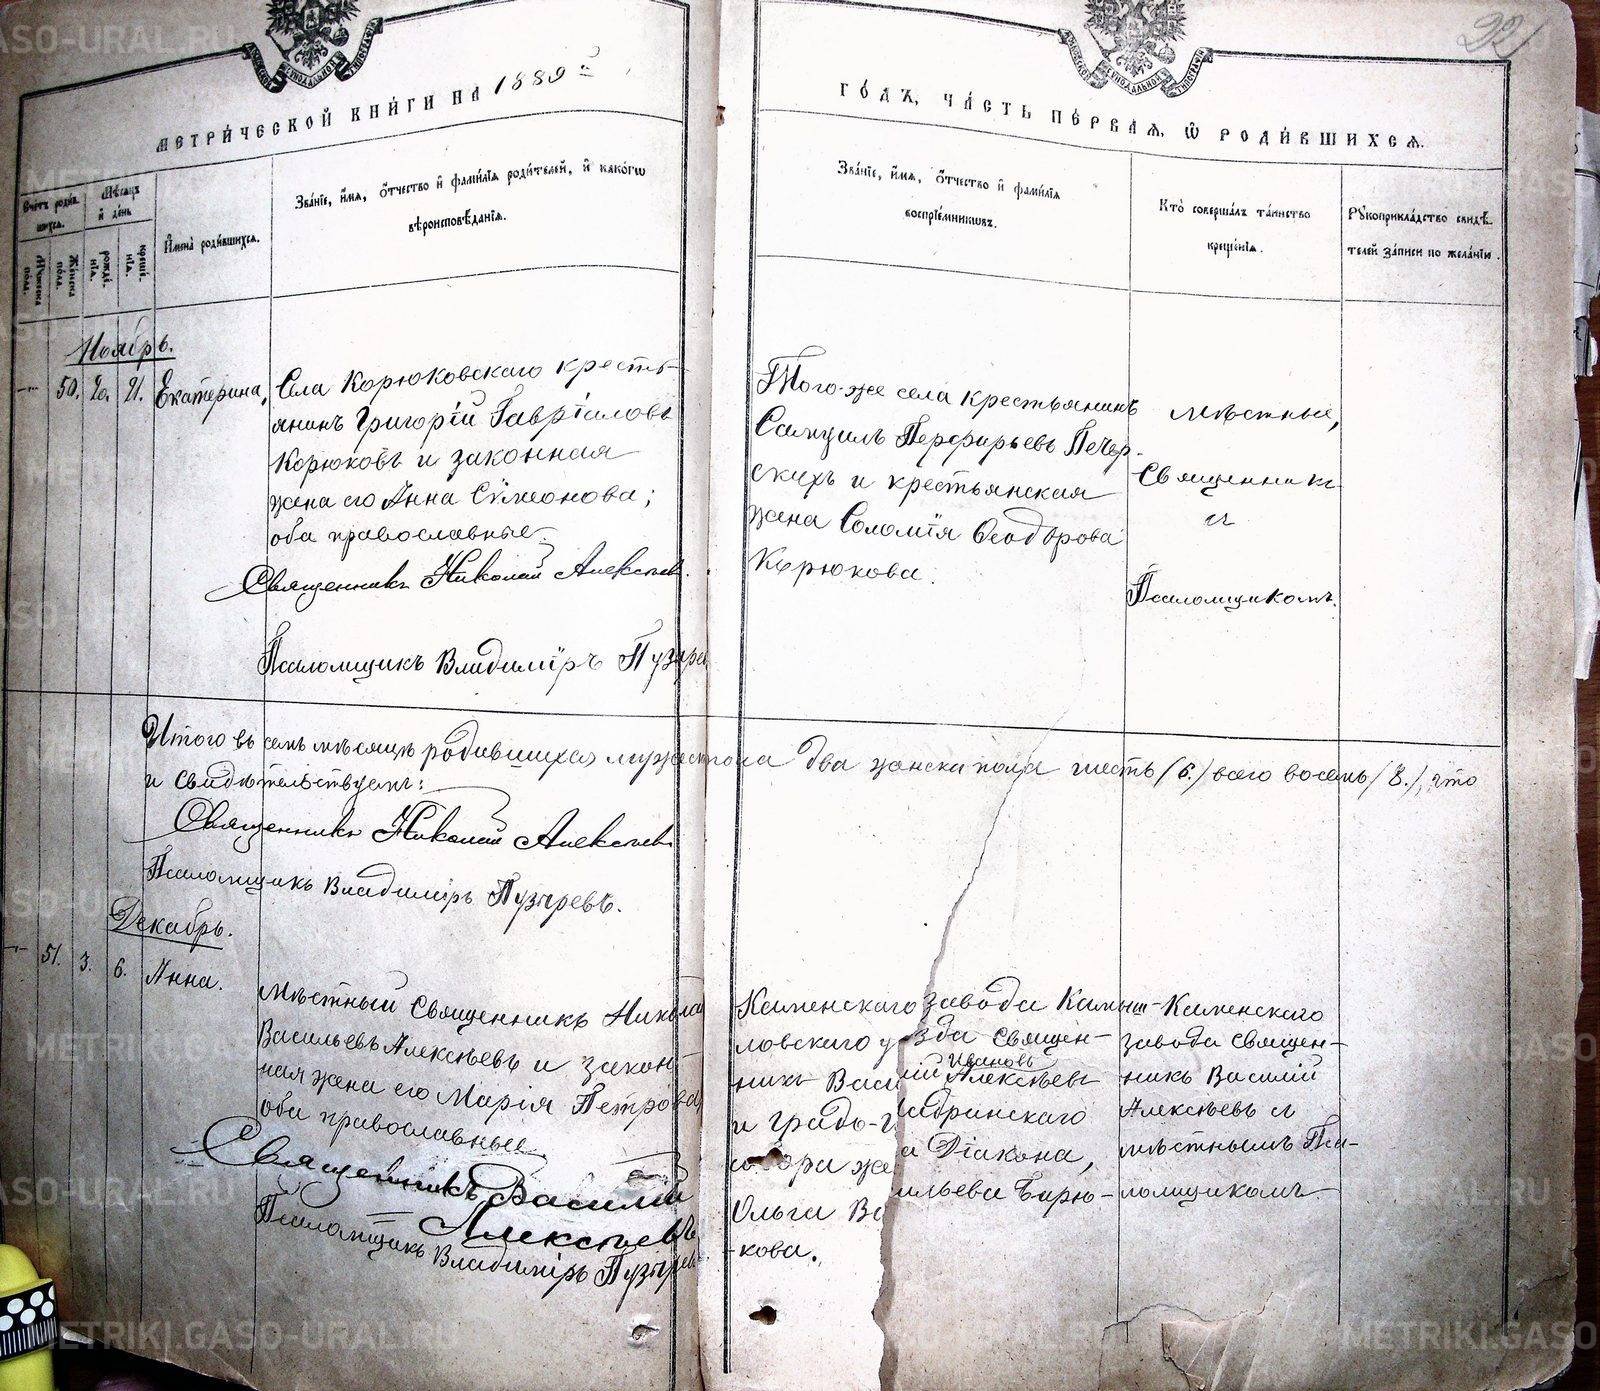 МЕТРИ́ЧЕСКОЙ КНИ́ГИ НА 1889 й
ГО́ДЪ, ЧА́СТЬ ПЕ́РВАѦ, Ѿ РОДИ́ВШИХСѦ.
221
Сче́тъ роди́вшихсѧ.
Му́жеска по́ла.
Же́нска по́ла.
Мѣ́сѧцъ и҆ де́нь
рожде́нїѧ.
креще́нїѧ.
И҆мена̀ роди́вшихсѧ.
Зва́нїе, и҆́мѧ, ѻ҆́тчество и҆ фами́лїѧ роди́телей, и҆ како́гѡ
вѣроисповѣ́данїѧ.
Зва́нїе, и҆́мѧ, ѻ҆́тчество и҆ фами́лїѧ
воспрїе́мникѡвъ.
Кто̀ соверша́лъ та́инство
креще́нїѧ.
Рꙋкоприкла́дство свидѣ́-
телей за́писи по жела́нїю.
Ноябрь.
— 50. 20. 21. Екатерина,
Села Корюковскаго кресть-
янинъ Григорій Гавріиловъ
Корюковъ и законная
жена его Анна Сѵмеонова;
оба православные
Священникъ Николай Алексѣевъ.
Псаломщикъ Владиміръ Пузырев
Того-же села крестьянинъ
Самуилъ Перфирьевъ Печер-
скихъ и крестьянская
жена Соломія Ѳеодорова
Корюкова.
Мѣстные,
Священник
и
Псаломщикомъ.
Итого въ семъ мѣсяцѣ родившихся мужеска пола два женска пола шесть (6.) всего восемь (8.), что
и свидѣтельствуемъ:
Священникъ Николай Алексѣевъ
Псаломщикъ Владиміръ Пузыревъ.
Декабрь.
— 51. 3. 6. Анна.
Мѣстный Священникъ Николай
Васильевъ Алексѣевъ и закон-
ная жена его Марія Петрова
оба православные
Священникъ Василій
Алексѣевъ
Псаломщикъ Владиміръ Пузырев
Каменскаго завода Камыш-
ловскаго уѣзда Священ-
Ивановъ
никъ Василій Алексѣевъ
и градо-Шадринскаго
собора жена Діакона,
Ольга Васильева Бирю-
-кова.
Каменскаго
завода Священ-
никъ Василій
Алексѣевъ и
мѣстнымъ Пса-
ломщикомъ.